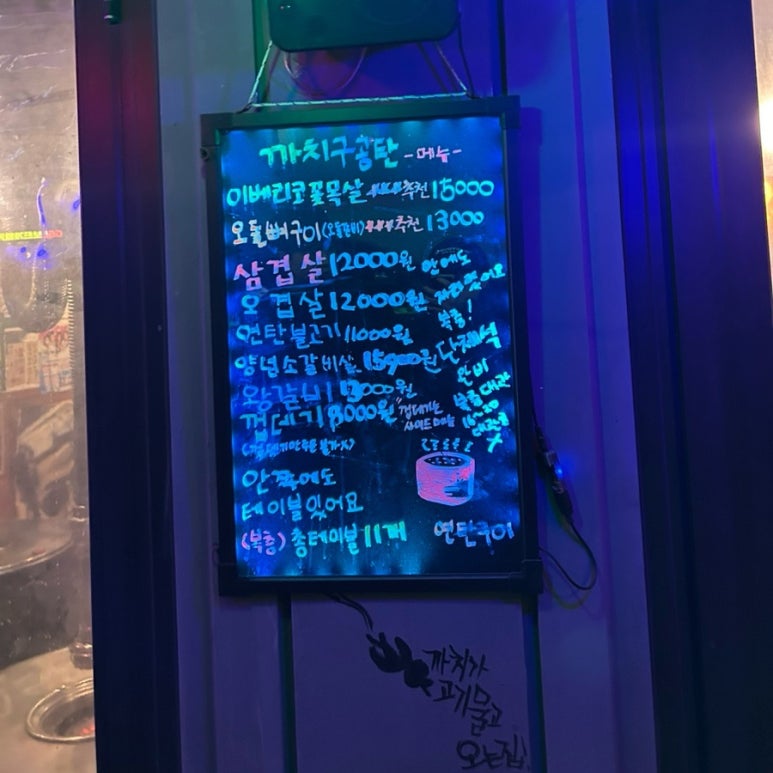 까치구공탄 -메뉴-
이베리코꽃목살 ***추천 15000
오돌뼈구이(오돌갈비) ***추천 13000
삼겹살 12000원
오겹살 12000원
연탄불고기 11000원
양념소갈비살 15900원
왕갈비 13000원
껍데기 8000원
"껍데기는
사이드메뉴
안에도
자리있어요
복층!
단체석
완비
복층대관
안쪽에도
테이블있어요
(복층) 총테이블 11개
연탄구이
까치가
고기물고
오는집!